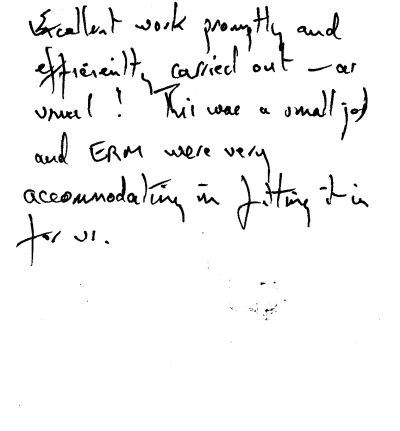 Excellent work promptly and
efficiently carried out – as
usual! This was a small job
and ERM were very
accommodating in fitting it in
for us.